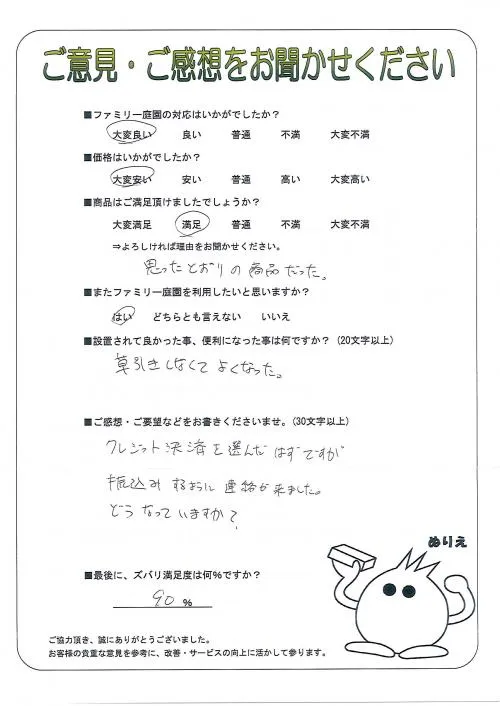 ご意見・ご感想をお聞かせください
■ファミリー庭園の対応はいかがでしたか？
大変良い 良い 普通 不満 大変不満
■価格はいかがでしたか？
大変安い 安い 普通 高い 大変高い
■商品はご満足頂けましたでしょうか？
大変満足 満足 普通 不満 大変不満
⇒よろしければ理由をお聞かせください。
思ったとおりの商品だった。
■またファミリー庭園を利用したいと思いますか？
はい どちらとも言えない いいえ
■設置されて良かった事、便利になった事は何ですか？（20文字以上）
草引きしなくてよくなった。
■ご感想・ご要望などをお書きくださいませ。（30文字以上）
クレジット決済を選んだはずですが
振込みするように連絡が来ました。
どうなっていますか？
ぬりえ
■最後に、ズバリ満足度は何％ですか？
90 ％
ご協力頂き、誠にありがとうございました。
お客様の貴重な意見を参考に、改善・サービスの向上に活かして参ります。